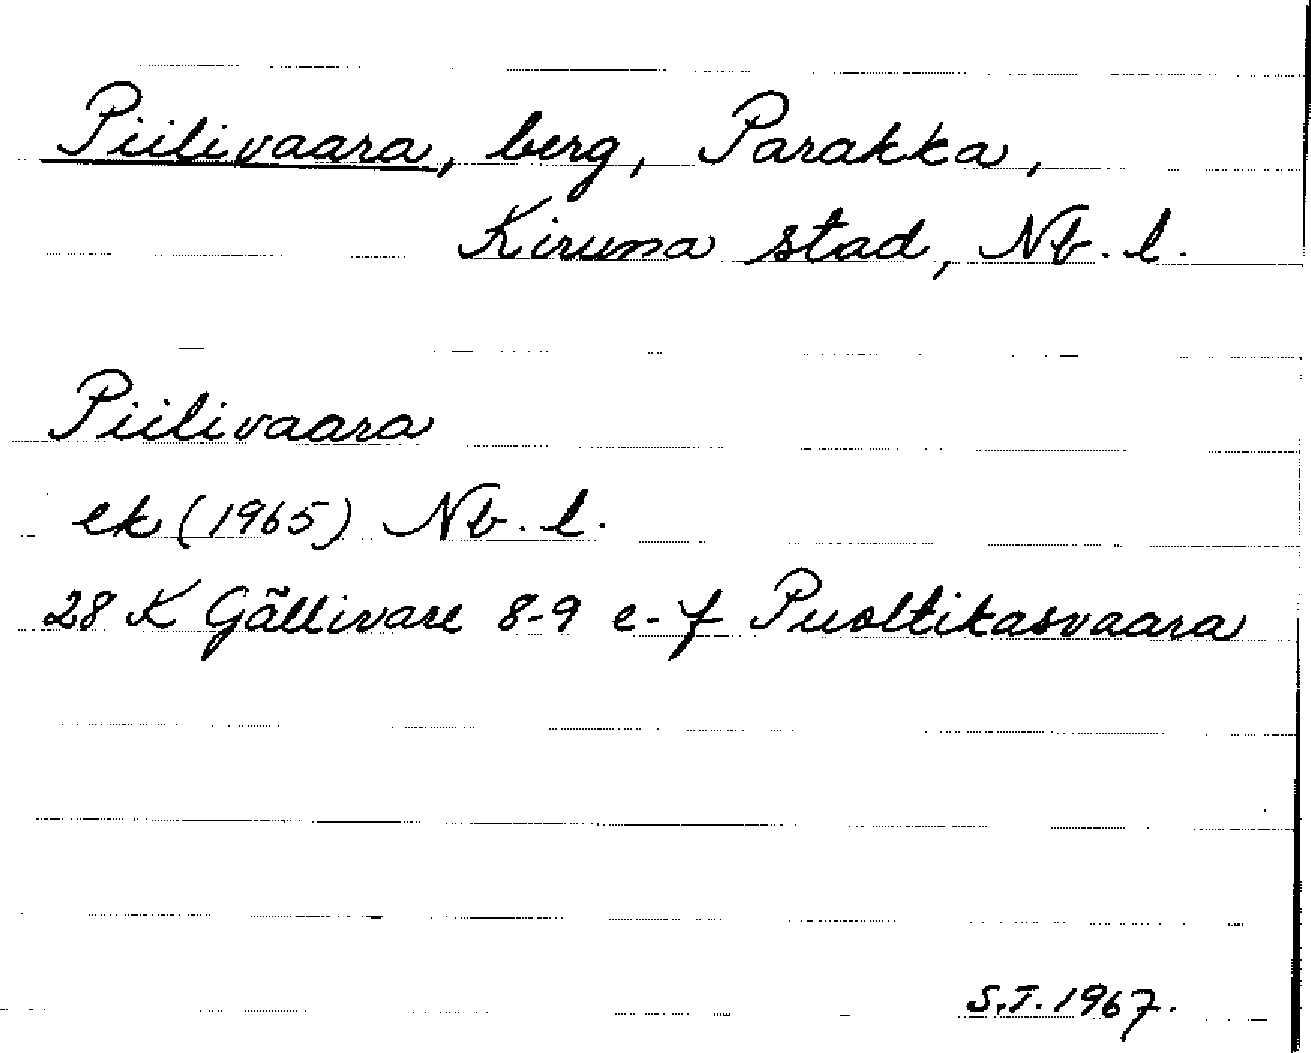 Piilivaara, berg, Parakka,
Kiruna stad, Nb. l.
Piilivaara
ek (1965) Nb. l.
28 K Gällivare 8-9 e-f Puoltikasvaara
S.T. 1967.